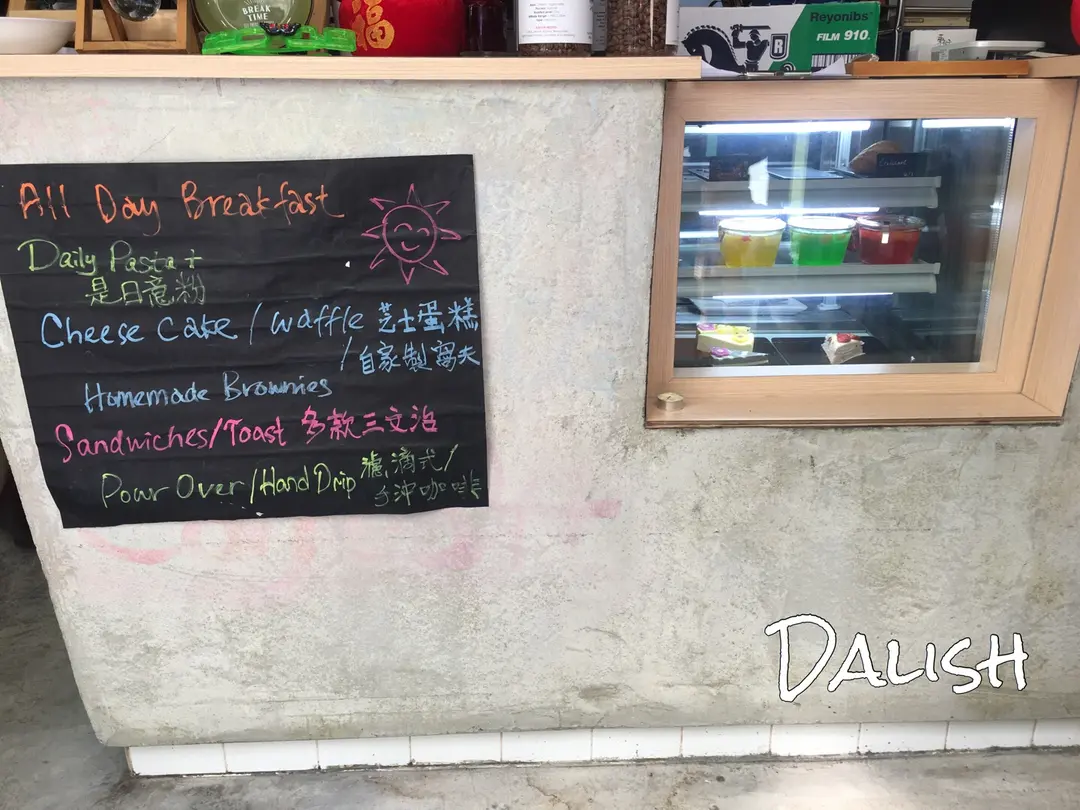 BREAK TIME
福
Reyonibs
R
FILM 910.
All Day Breakfast
Daily Pasta +
是日意粉
Cheese Cake / Waffle 芝士蛋糕
/ 自家製窩夫
Homemade Brownies
Sandwiches/Toast 多款三文治
Pour Over/Hand Drip 濾滴式/
手沖咖啡
DALISH